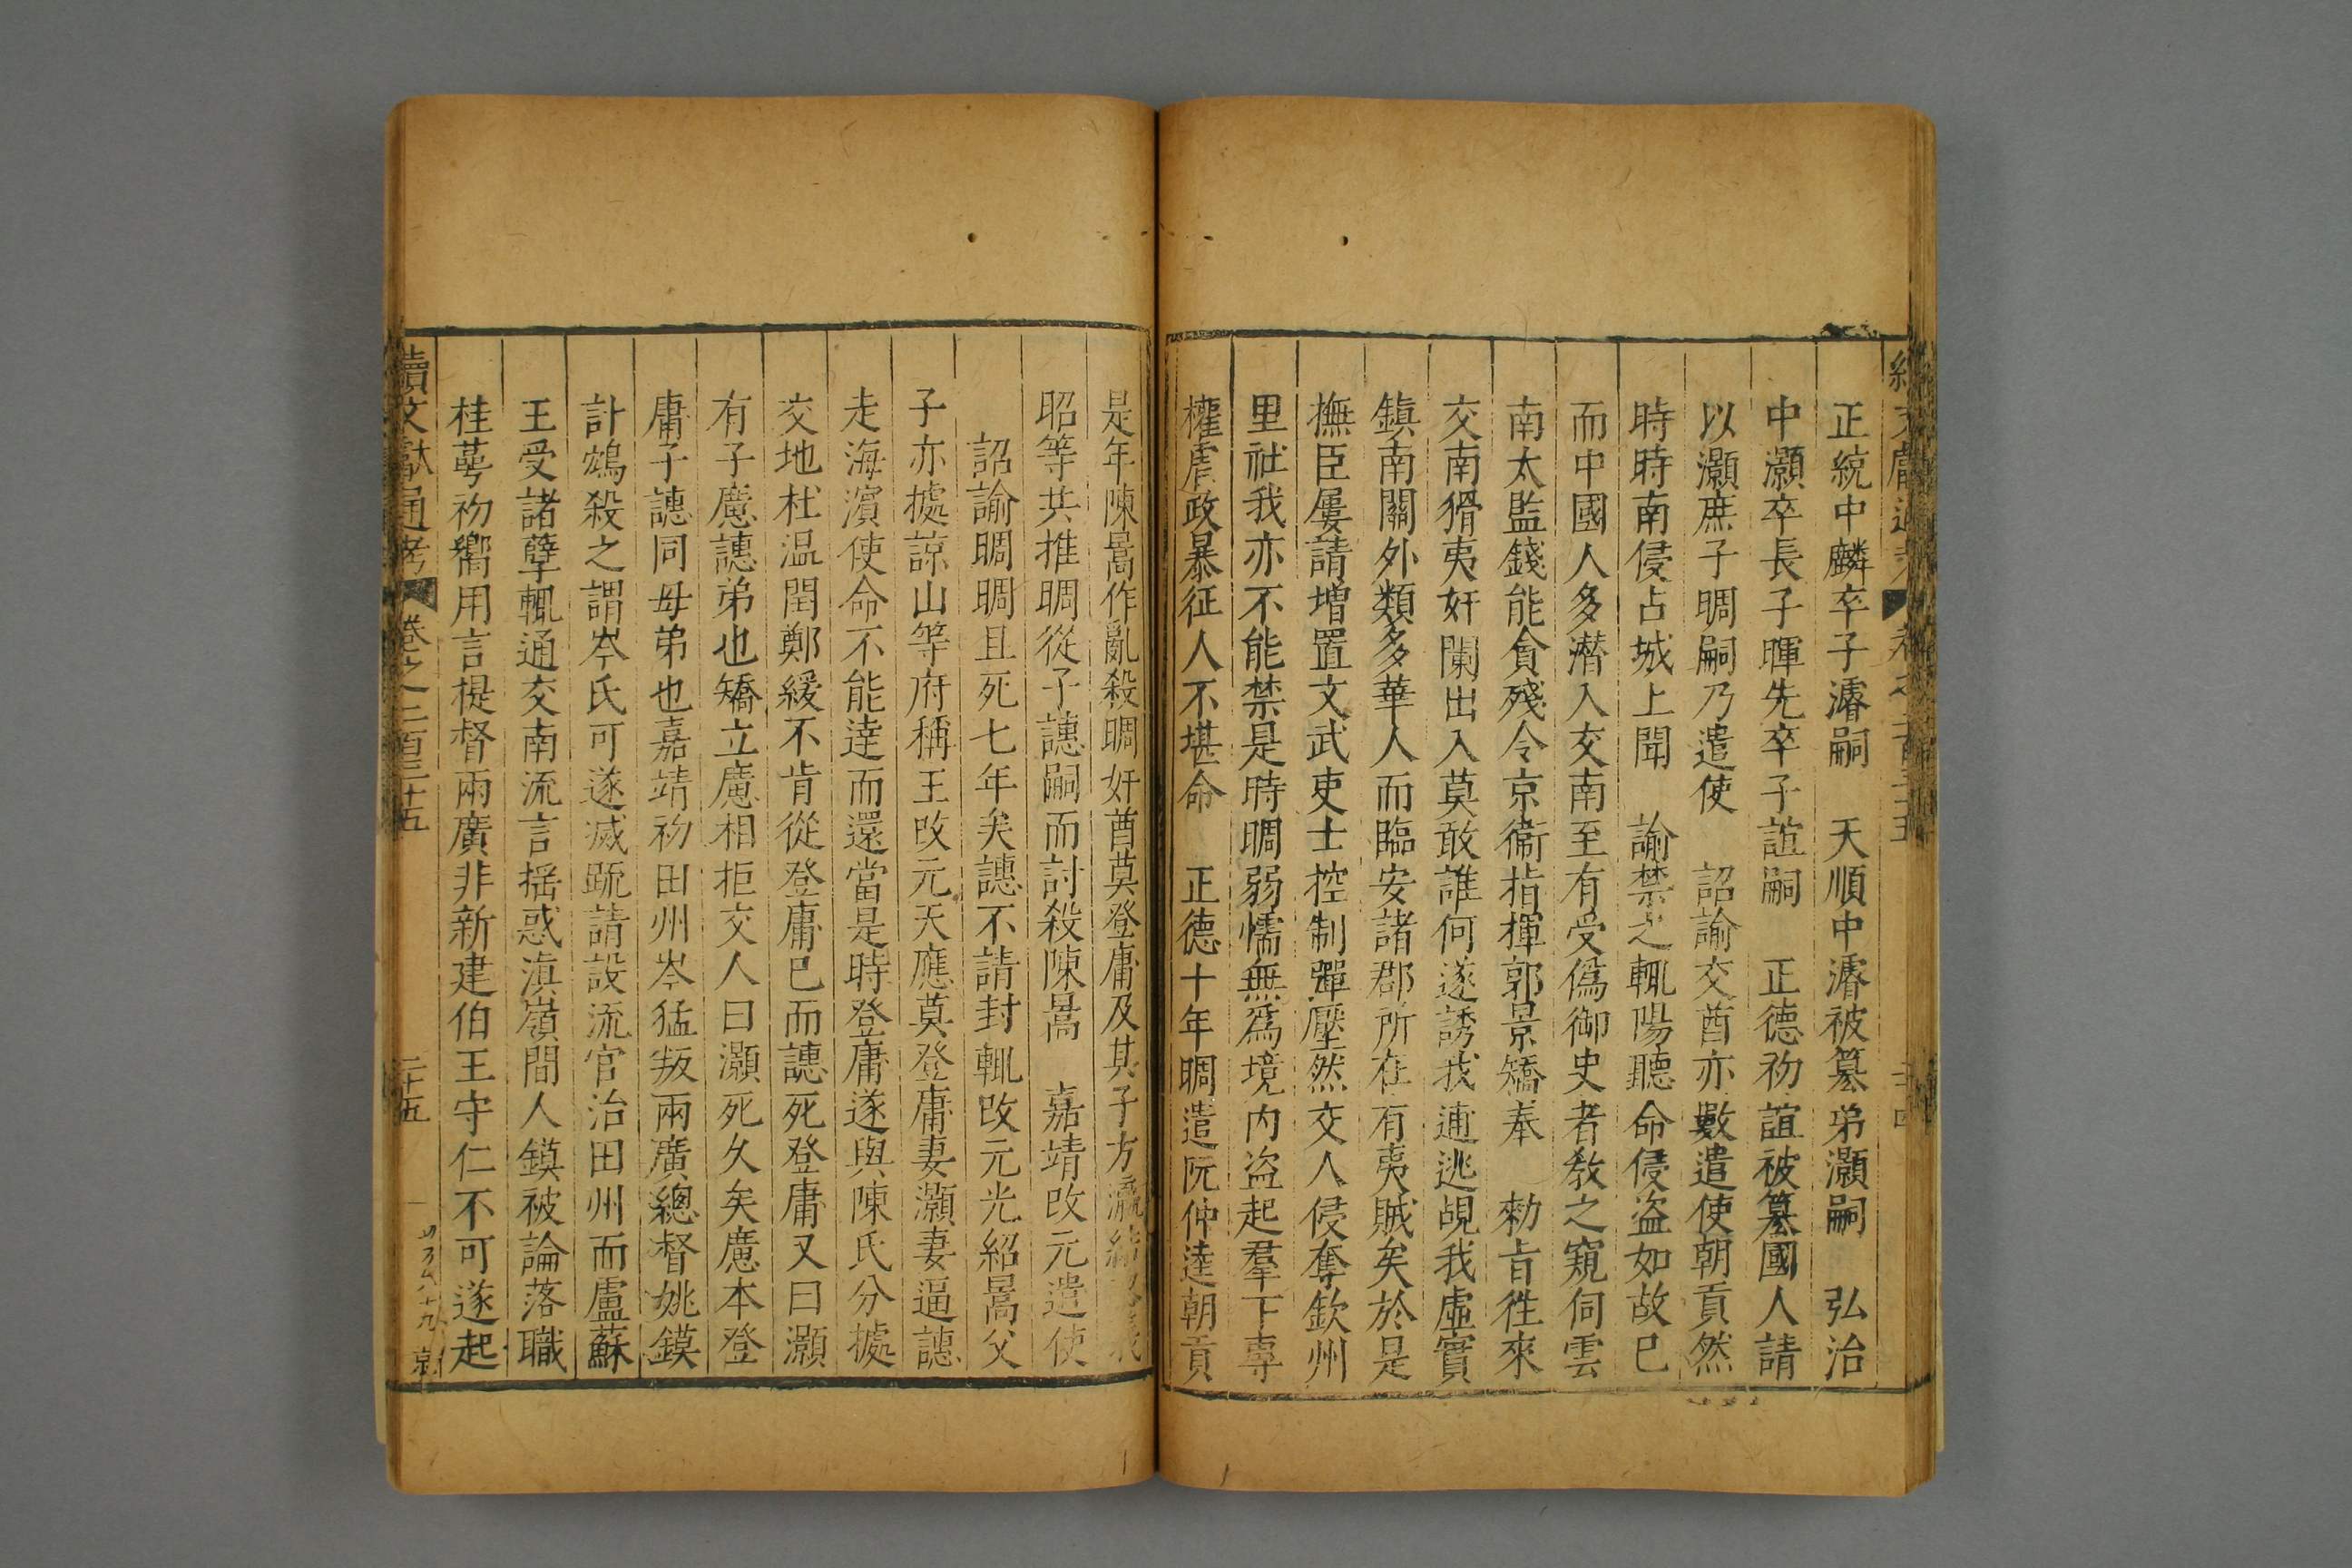 正統中麟卒子濬嗣　天順中濬被篡弟灝嗣　弘治
中灝卒長子暉先卒子誼嗣　正德初誼被篡國人請
以灝庶子晭嗣乃遣使　詔諭交酋亦數遣使朝貢然
時時南侵占城上聞　諭禁之輒陽聽命侵盜如故已
而中國人多潛入交南至有受偽御史者教之窺伺雲
南太監錢能貪殘令京衞指揮郭景矯奉　勑旨徃來
交南猾夷奸闌出入莫敢誰何遂誘我逋逃覘我虛實
鎮南關外類多華人而臨安諸郡所在有夷賊矣於是
撫臣屢請增置文武吏士控制彈壓然交人侵奪欽州
里社我亦不能禁是時晭弱懦無爲境内盜起羣下專
權虐政暴征人不堪命　正德十年晭遣阮仲逵朝貢
是年陳暠作亂殺晭奸酋莫登庸及其子方瀛
昭等共推晭從子譓嗣而討殺陳暠　嘉靖改元遣使
詔諭晭晭且死七年矣譓不請封輒改元光紹暠父
子亦據諒山等府稱王改元天應莫登庸妻灝妻逼譓
走海濱使命不能逹而還當是時登庸遂與陳氏分據
交地杜温閏鄭綏不肯從登庸已而譓死登庸又曰灝
有子廌譓弟也矯立廌相拒交人曰灝死久矣廌本登
庸子譓同母弟也嘉靖初田州岑猛叛兩廣總督姚鏌
計鴆殺之謂岑氏可遂滅䟽請設流官治田州而盧蘇
王受諸孽輒通交南流言揺惑滇嶺間人鏌被論落職
桂萼初嚮用言提督兩廣非新建伯王守仁不可遂起
續文獻通考　卷之二百三十五　二十五